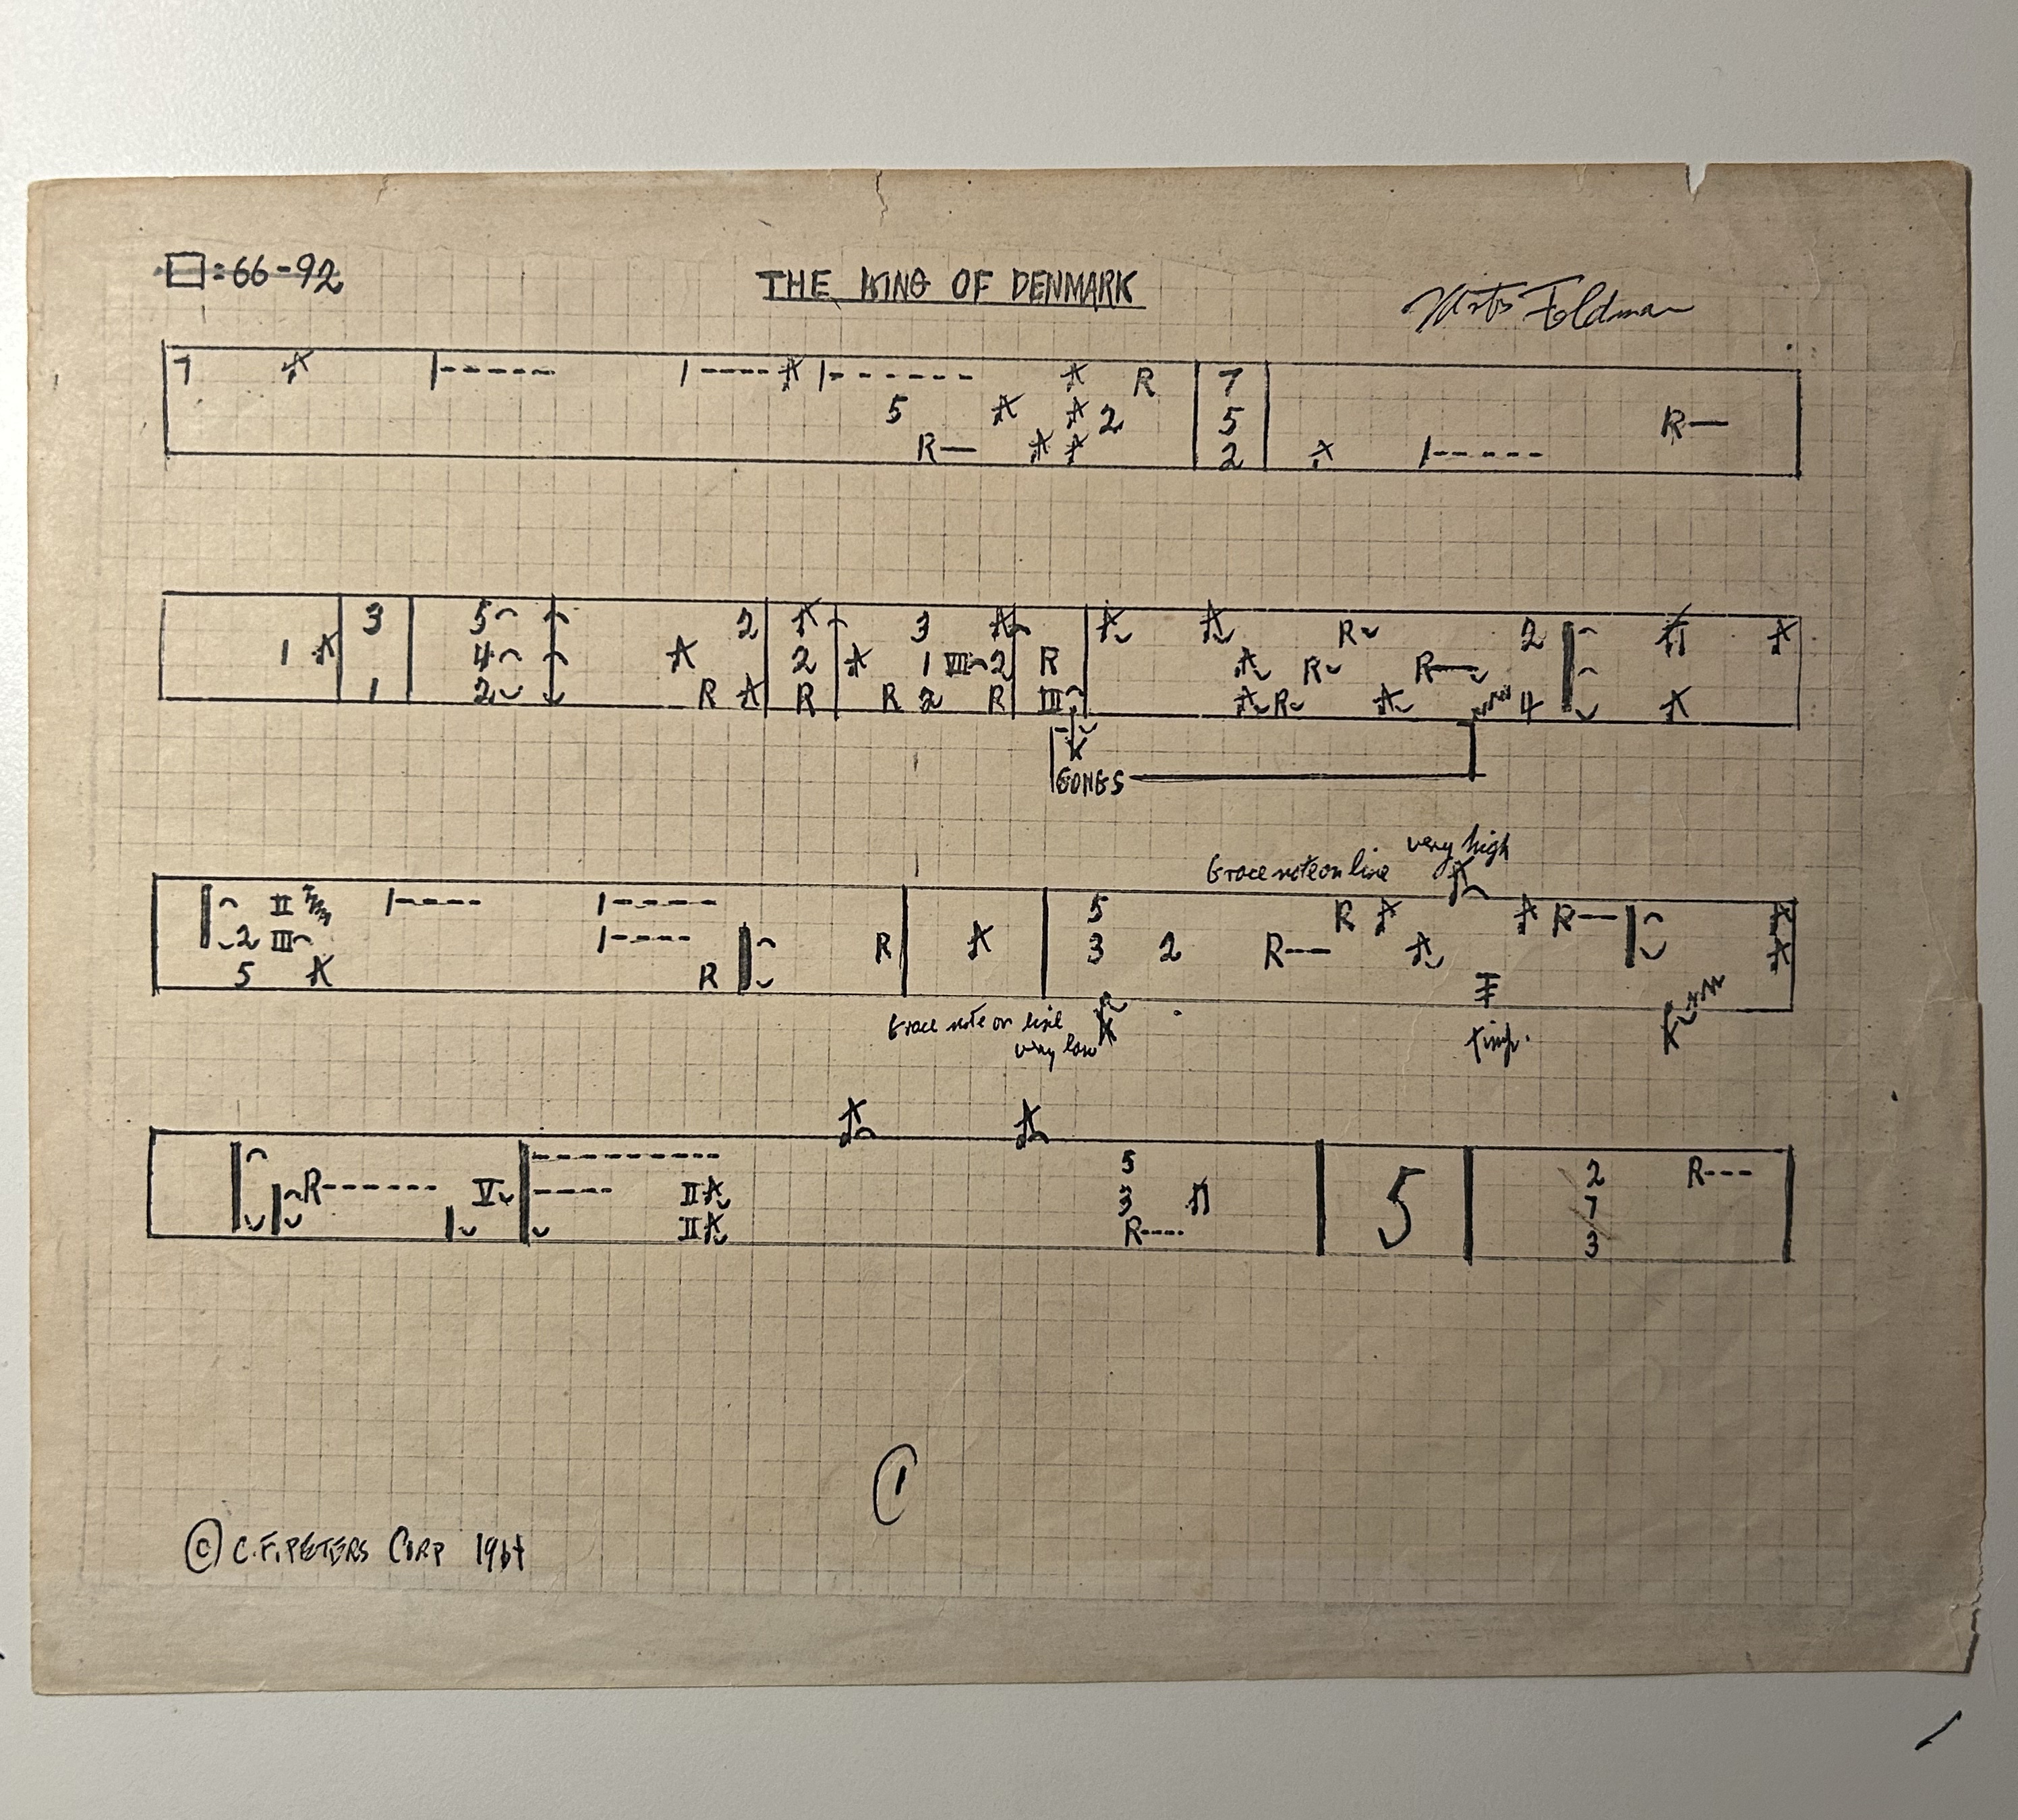 □=66-92
THE KING OF DENMARK
Feldman
7 5 2 R
R—
7
5
2
R—
1
3
1
5
4
2
2
R
2
R
3
1 VII 2
R 2 R
R
III
R
R R—
R
2
4
GONGS
very high
Grace note on line
II
2 III
5
R
R
5
3 2 R---
R R—
Grace note on line
very low
timp.
R------ V
II
II
5
3
R----
5
2 R---
7
3
1
© C.F. PETERS CORP 1964